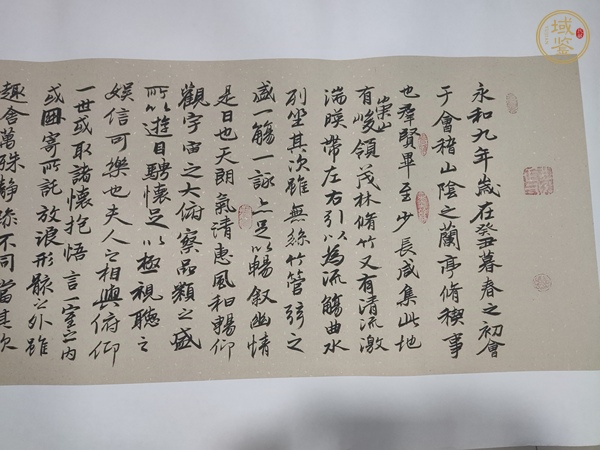 永和九年歲在癸丑暮春之初會
于會稽山陰之蘭亭脩稧事
也羣賢畢至少長咸集此地
有崇山峻領茂林脩竹又有清流激
湍暎帶左右引以為流觴曲水
列坐其次雖無絲竹管弦之
盛一觴一詠亦足以暢敘幽情
是日也天朗氣清惠風和暢仰
觀宇宙之大俯察品類之盛
所以遊目騁懷足以極視聽之
娛信可樂也夫人之相與俯仰
一世或取諸懷抱悟言一室之內
或因寄所託放浪形骸之外雖
趣舍萬殊靜躁不同當其欣
域鉴